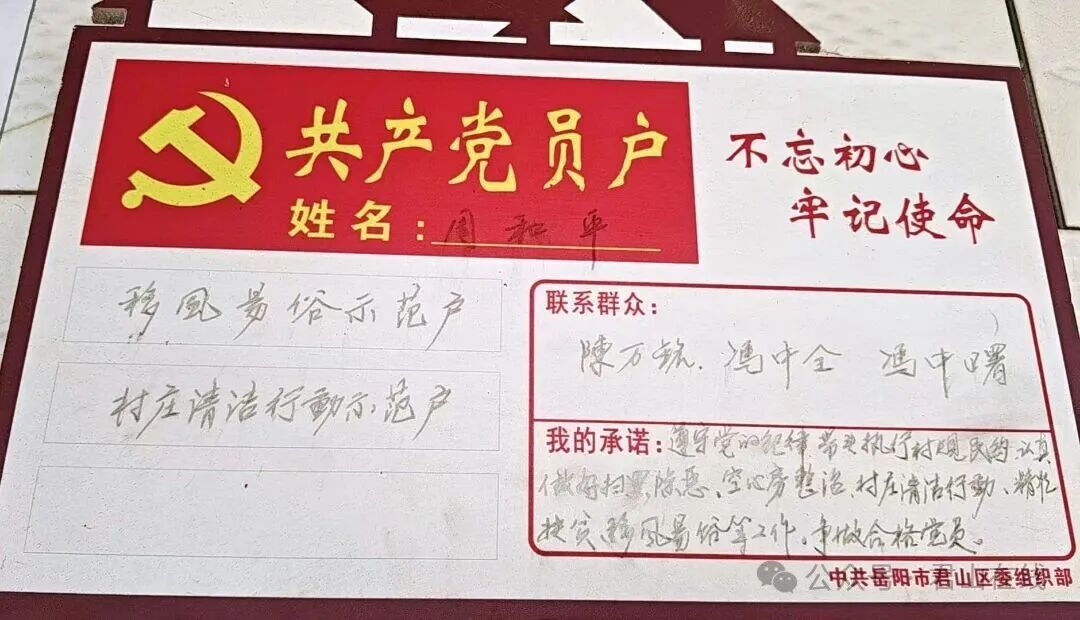 共产党员户
姓名：周和平
不忘初心
牢记使命
移風易俗示范户
村庄清洁行動示范户
联系群众：
陳万铭．馮中全 馮中曙
我的承诺：遵守党的纪律 带头执行村规民约 认真
做好扫黑除恶、空心房整治、村庄清洁行動、精准
扶贫、移风易俗等工作，争做合格党员。
中共岳阳市君山区委组织部
公众号·君山在线